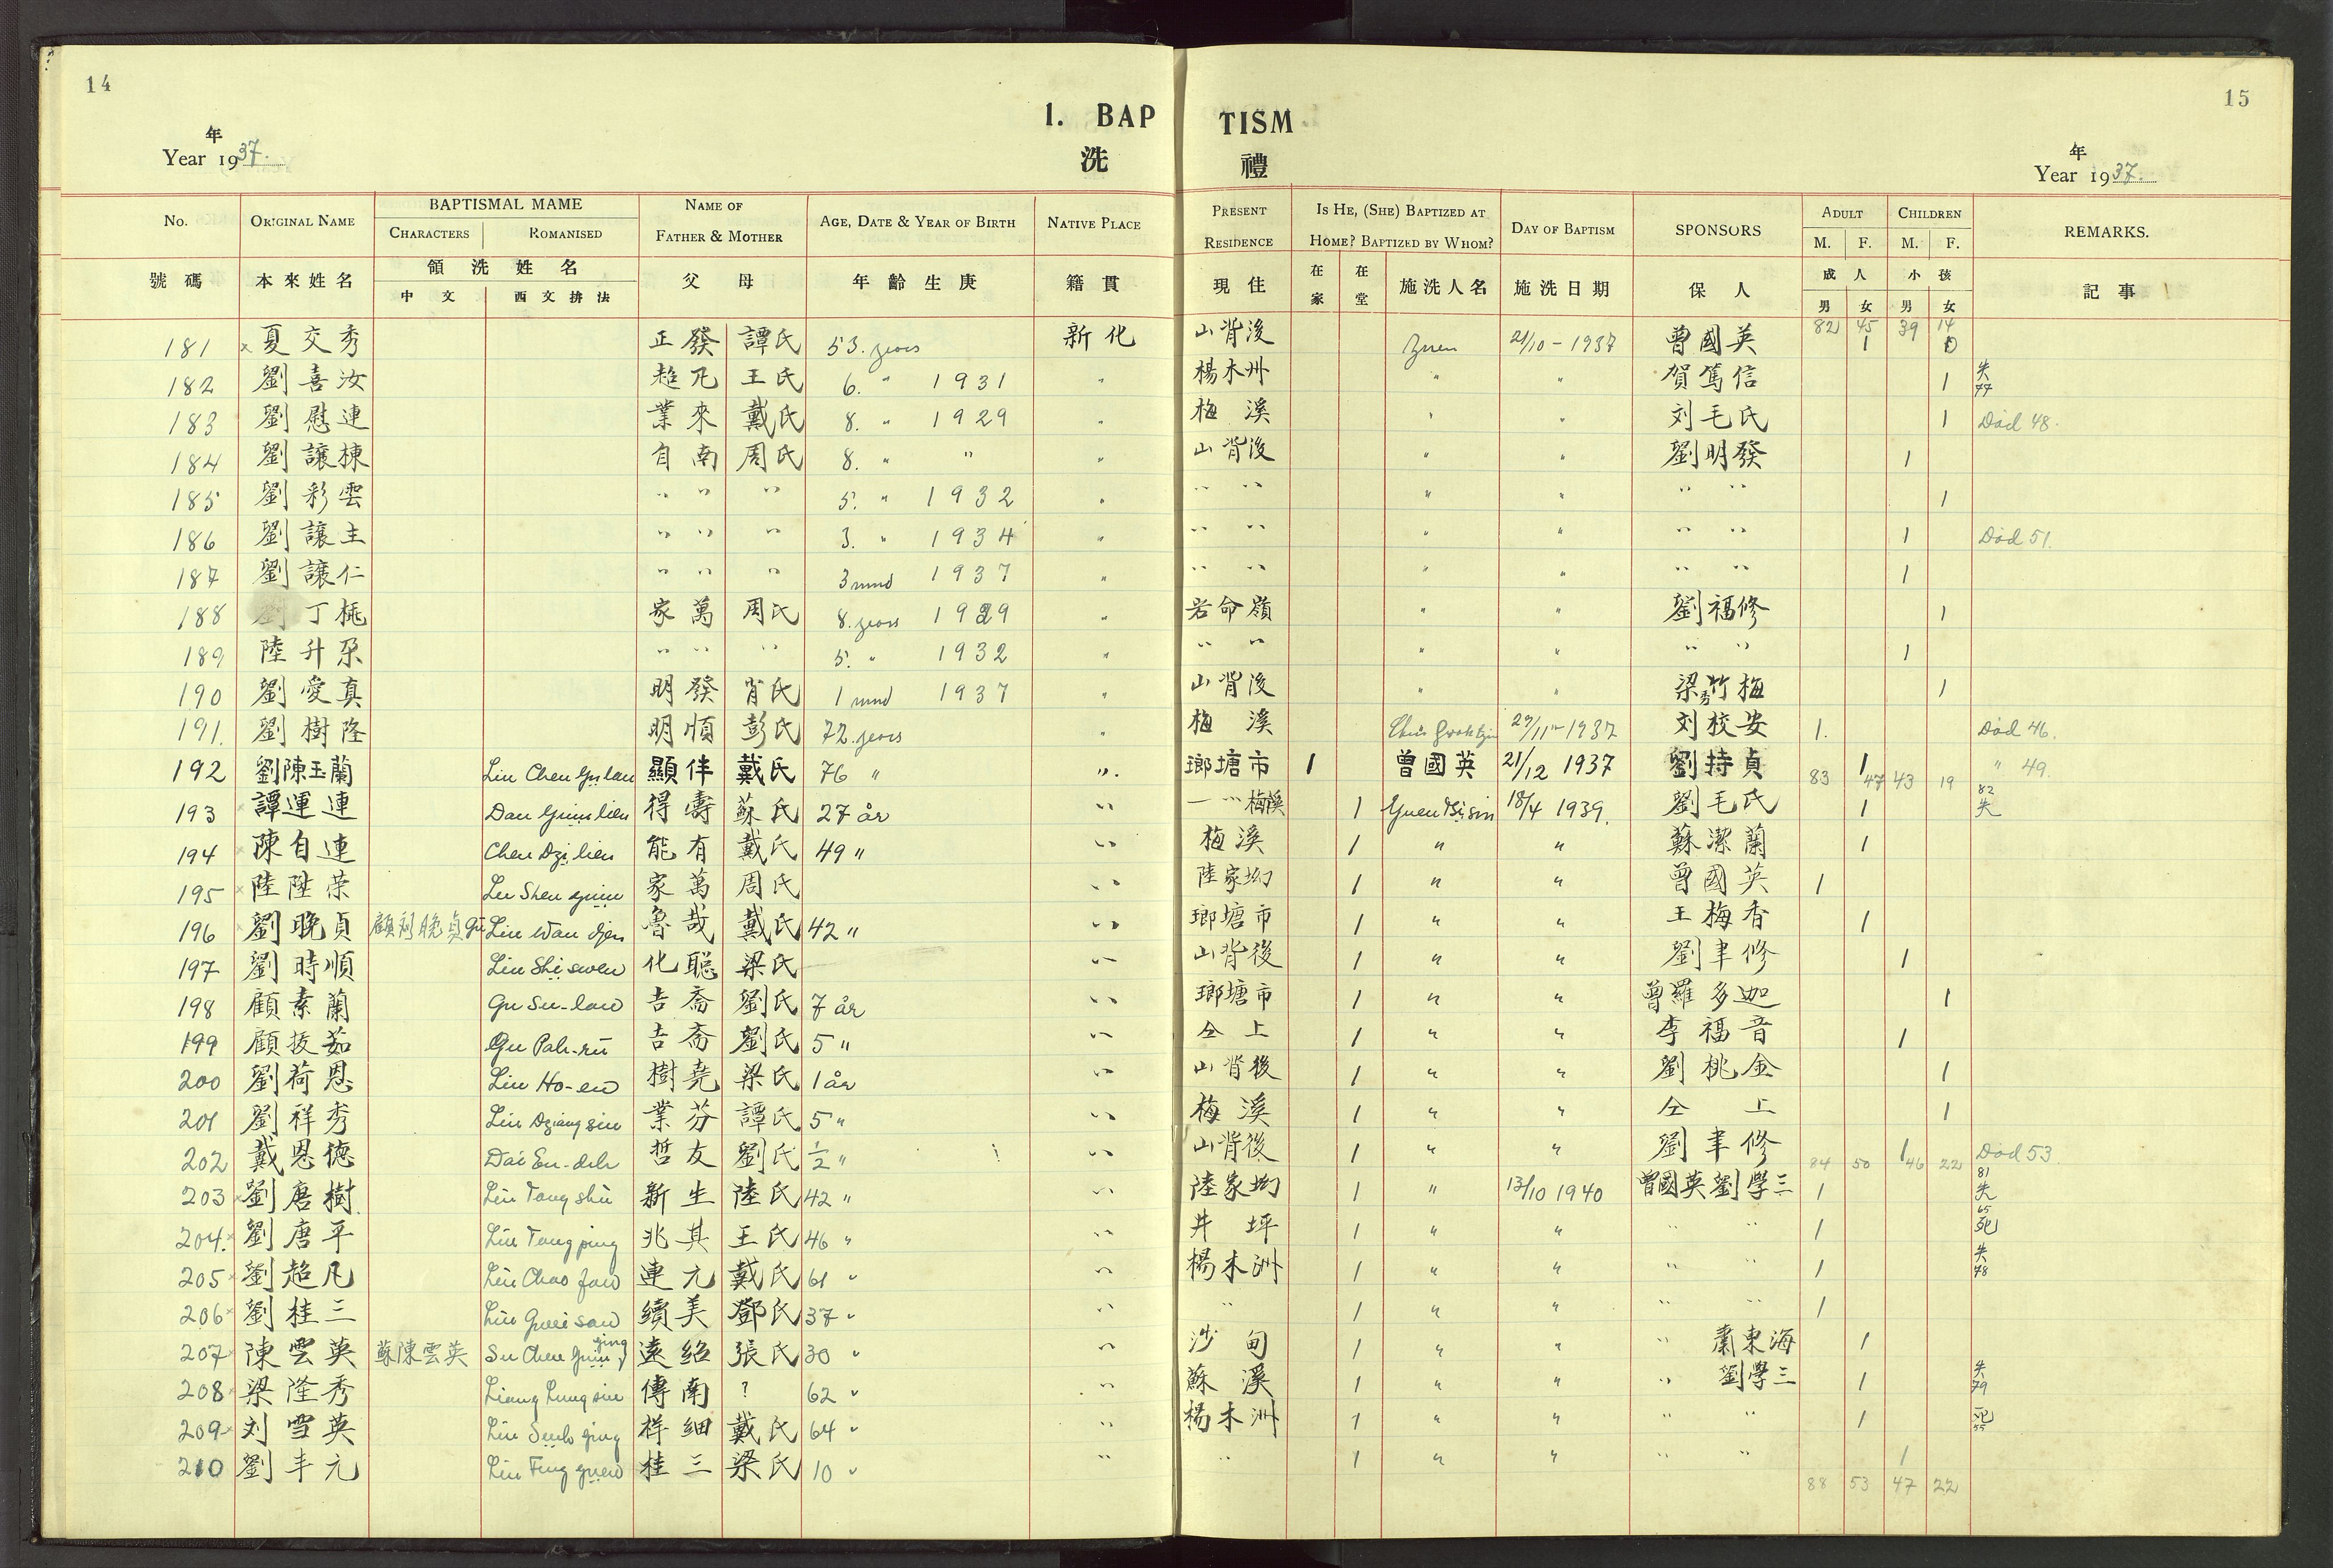 14
15
1. BAP TISM
洗 禮
年
Year 1937.
年
Year 1937.
No. ORIGINAL NAME BAPTISMAL MAME NAME OF FATHER & MOTHER AGE, DATE & YEAR OF BIRTH NATIVE PLACE PRESENT RESIDENCE IS HE, (SHE) BAPTIZED AT HOME? BAPTIZED BY WHOM? DAY OF BAPTISM SPONSORS ADULT CHILDREN REMARKS.
CHARACTERS ROMANISED M. F. M. F.
號碼 本來姓名 領洗姓名 父 母 年齡生庚 籍貫 現住 在家 在堂 施洗人名 施洗日期 保人 成人 小孩 記事
中文 西文拚法 男 女 男 女
82 45 39 14
181 × 夏交秀 正發 譚氏 53. years 新化 山背後 21/10-1937 曾國英 1
182 劉喜汝 超凡 王氏 6. " 1931 " 楊木州 " " 賀篤信 1 失 77
183 劉慰連 業來 戴氏 8. " 1929 " 梅溪 " " 刘毛氏 1 Död 48.
184 劉讓棟 自南 周氏 8. " " " 山背後 " " 劉明發 1
185 劉彩雲 " " " 5. " 1932 " " " " " " " 1
186 劉讓主 " " " 3. " 1934 " " " " " " " 1 Död 51.
187 劉讓仁 " " " 3 mnd 1937 " " " " " " " 1
188 劉丁桃 家萬 周氏 8. years 1929 " 岩命嶺 " " 劉福修 1
189 陸升 " " " 5. " 1932 " " " " " " " 1
190 劉愛真 明發 肖氏 1 mnd 1937 " 山背後 " " 梁秀竹梅 1
191. 劉樹隆 明順 彭氏 72. years " 梅溪 29/11-1937 刘校安 1. Död 46.
192 劉陳玉蘭 Liu Chen Yu lan 顯伴 戴氏 76 " ". 瑯塘市 1 曾國英 21/12 1937 劉持貞 1 " 49.
83 47 43 19
193 × 譚運連 Dan Yuin lien 得壽 蘇氏 27 år " 梅溪 1 Yuen Tsi sin 18/4 1939. 劉毛氏 1 82 失
194 × 陳自連 Chen Dzi lien 能有 戴氏 49 " " 梅溪 1 " " 蘇潔蘭 1
195 × 陸陞荣 家萬 周氏 " 陸家坳 1 " " 曾國英 1
196 × 劉晚貞 顧刘晚貞 Gu Liu Wan djen 魯哉 戴氏 42 " " 瑯塘市 1 " " 王梅香 1
197 劉時順 Liu Shi swen 化聰 梁氏 " 山背後 1 " " 劉聿修 1
198 顧素蘭 Gu Su-lan 吉斋 劉氏 7 år " 瑯塘市 1 " " 曾羅多迦 1
199 顧拔茹 Gu Pah-ru 吉斋 劉氏 5 " " 仝上 1 " " 李福音 1
200 劉荷恩 Liu Ho-en 樹堯 梁氏 1 år " 山背後 1 " " 劉桃金 1
201 劉祥秀 Liu Dziang siu 業芬 譚氏 5 " " 梅溪 1 " " 仝上 1
202 戴恩德 Dai En-deh 哲友 劉氏 1/2 " " 山背後 1 " " 劉聿修 1 Död 53
84 50 46 22
203 × 劉唐樹 Liu Tang shu 新生 陸氏 42 " " 陸家坳 1 " 13/10 1940 曾國英 劉學三 1 81 失
204. × 劉唐平 Liu Tang ping 兆其 王氏 46 " " 井坪 1 " " " " 1 65 死
205 × 劉超凡 Liu Chao fan 連元 戴氏 61 " " 楊木洲 1 " " " " 1 失 78
206 × 劉桂三 Liu Gwei san 續美 鄧氏 37 " " " 1 " " " " 1
207 × 陳雲英 蘇陳雲英 Su Chen Yuin ying 遠紹 張氏 30 " " 沙甸 1 " " " 肅東海 1
208 × 梁隆秀 Liang Lung siu 傳南 ? 62 " " 蘇溪 1 " " " 劉學三 1 失 79
209 × 刘雪英 Liu Sueh ying 祥細 戴氏 64 " " 楊木洲 1 " " " " 1 死 55
210 劉丰元 Liu Feng yuen 桂三 梁氏 10 " " " 1 " " " " 1
88 53 47 22